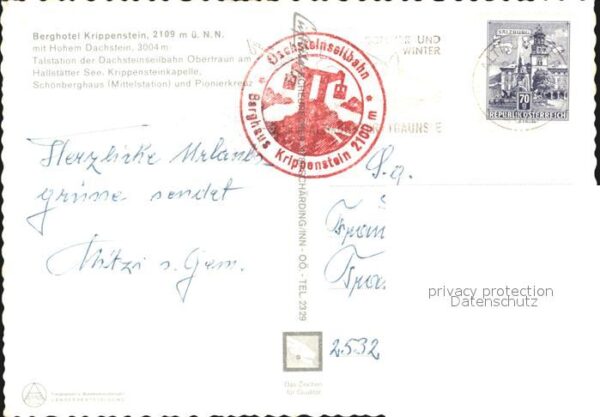 Berghotel Krippenstein, 2109 m ü. N. N.
mit Hohem Dachstein, 3004 m
Talstation der Dachsteinseilbahn Obertraun am
Hallstätter See. Krippensteinkapelle,
Schönberghaus (Mittelstation) und Pionierkreuz
Dachsteinseilbahn
Berghaus Krippenstein 2100 m
UND
WINTER
SALZBURG
70
REPUBLIK ÖSTERREICH
Herzliche Urlaubs
grüsse sendet
Mitzi u.
SCHÄRDING/INN - OÖ. - TEL. 2329
Frau
2532
privacy protection
Datenschutz
Das Zeichen
für Qualität